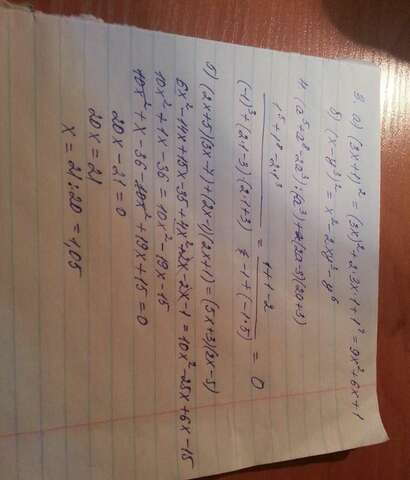 3. а) (3x+1)² = (3x)²+2·3x·1+1² = 9x²+6x+1
б) (x-y³)² = x²-2xy³-y⁶
4. (a⁵+a⁸-2a³):(a³)+(2a-3)(2a+3)
1⁵+1⁸-2·1³
(-1)³+(2·1-3)(2·1+3) = 1+1-2
-1+(-1·5) = 0
5) (2x+5)(3x-7)+(2x-1)(2x+1)=(5x+3)(2x-5)
6x²-14x+15x-35+4x²+2x-2x-1=10x²-25x+6x-15
10x²+1x-36=10x²-19x-15
10x²+x-36-10x²+19x+15=0
20x-21=0
20x=21
x=21:20=1,05